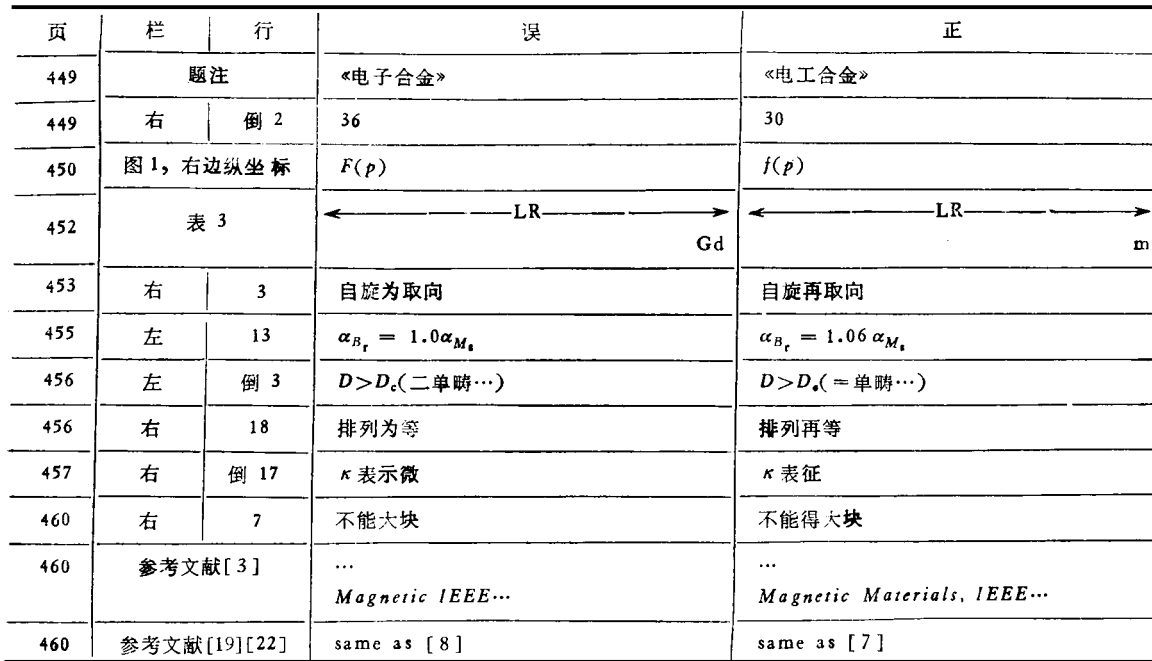 页 栏 行 误 正
449 题注 《电子合金》 《电工合金》
449 右 倒 2 36 30
450 图 1，右边纵坐标 F(p) f(p)
452 表 3 ←LR→ ←LR→
Gd m
453 右 3 自旋为取向 自旋再取向
455 左 13 α_{B_r} = 1.0α_{M_s} α_{B_r} = 1.06 α_{M_s}
456 左 倒 3 D>D_c(二单畴…) D>D_c(=单畴…)
456 右 18 排列为等 排列再等
457 右 倒 17 κ 表示微 κ 表征
460 右 7 不能大块 不能得大块
460 参考文献[3] … …
Magnetic IEEE… Magnetic Materials, IEEE…
460 参考文献[19][22] same as [8] same as [7]